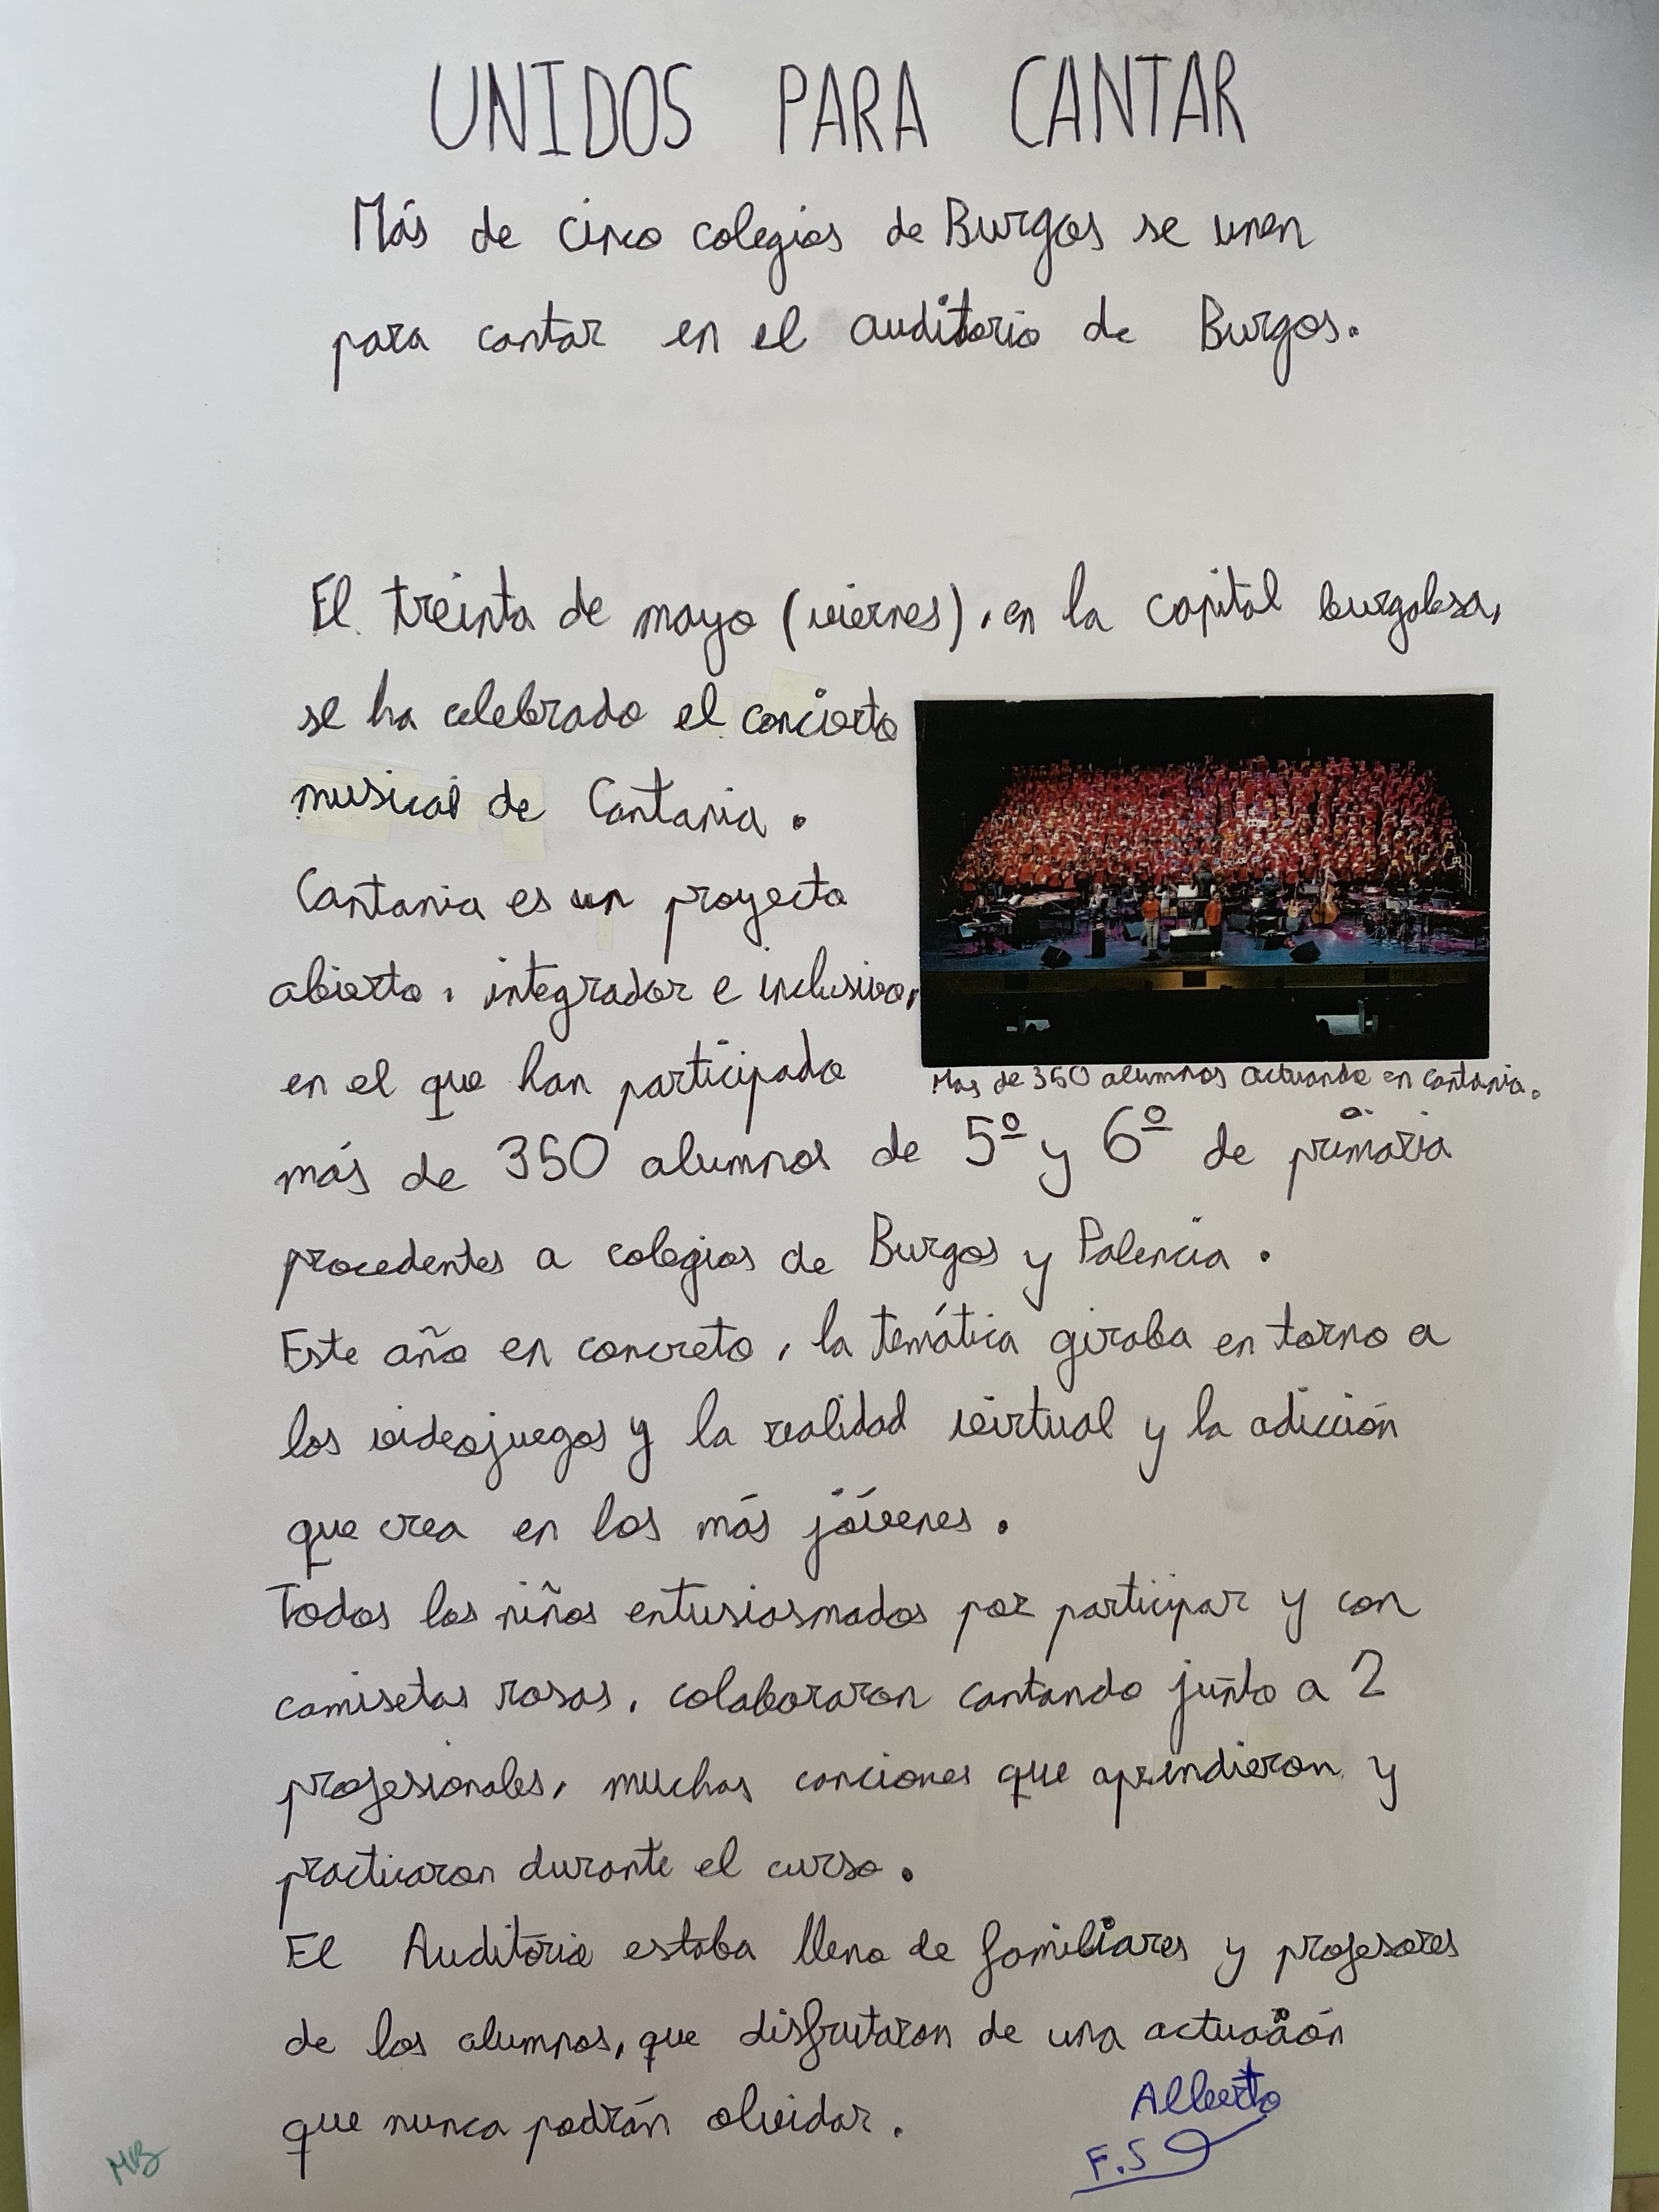 UNIDOS PARA CANTAR
Más de cinco colegios de Burgos se unen
para cantar en el auditorio de Burgos.
El treinta de mayo (viernes), en la capital burgalesa,
se ha celebrado el concierto
musical de Cantania.
Cantania es un proyecto
abierto, integrador e inclusivo,
en el que han participado
Mas de 350 alumnos actuando en Cantania.
más de 350 alumnos de 5º y 6º de primaria
procedentes a colegios de Burgos y Palencia.
Este año en concreto, la temática giraba en torno a
los videojuegos y la realidad virtual y la adicción
que crea en los más jóvenes.
Todos los niños entusiasmados por participar y con
camisetas rosas, colaboraron cantando junto a 2
profesionales, muchas canciones que aprendieron y
practicaron durante el curso.
El Auditorio estaba lleno de familiares y profesores
de los alumnos, que disfrutaron de una actuación
que nunca podrán olvidar.
Alberto
F.S
MB